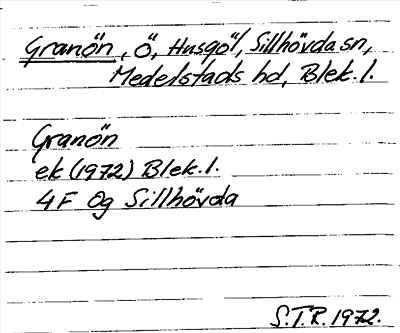 Granön, ö, Husgöl, Sillhövda sn,
Medelstads hd, Blek. l.
Granön
ek (1972) Blek. l.
4F 0g Sillhövda
S.T.R. 1972.